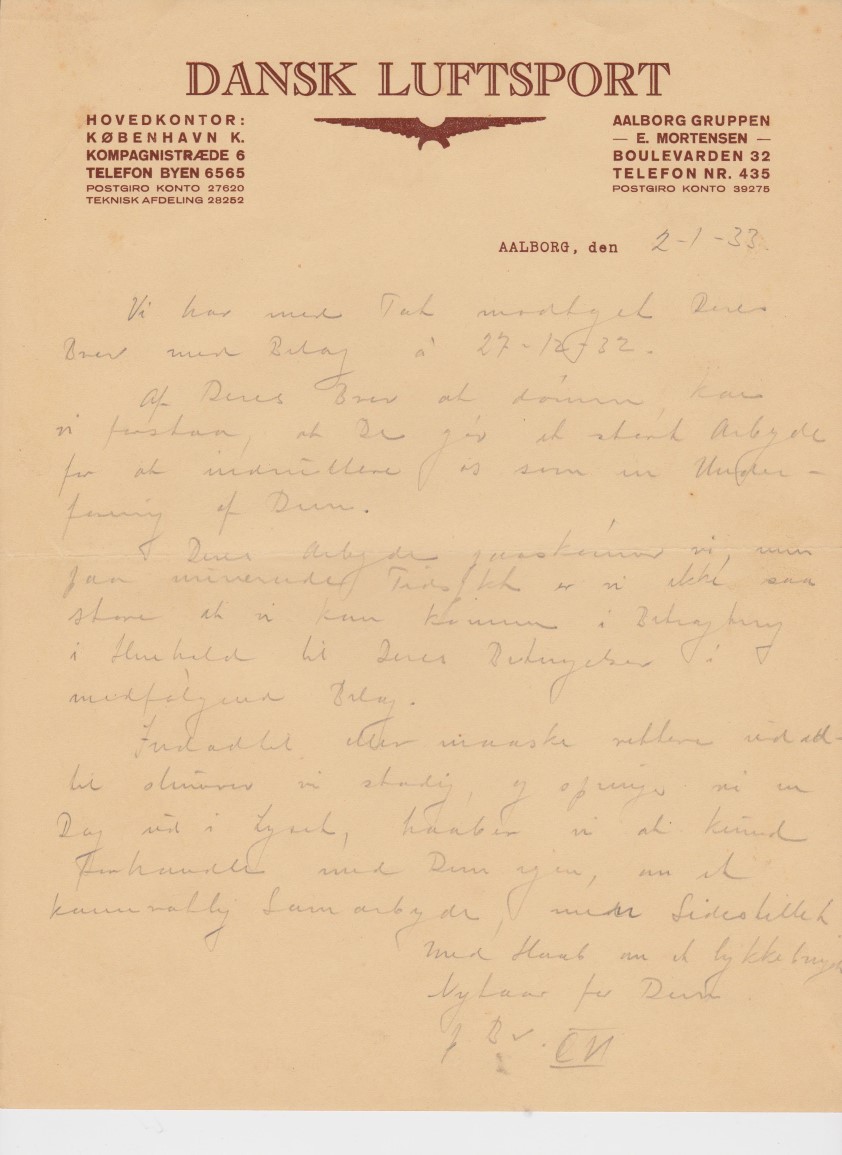 DANSK LUFTSPORT
HOVEDKONTOR:
KØBENHAVN K.
KOMPAGNISTRÆDE 6
TELEFON BYEN 6565
POSTGIRO KONTO 27620
TEKNISK AFDELING 28252
AALBORG GRUPPEN
— E. MORTENSEN —
BOULEVARDEN 32
TELEFON NR. 435
POSTGIRO KONTO 39275
AALBORG, den 2-1-33.
Vi har med Tak modtaget Deres
Brev med Bilag á 27-12-32.
Af Deres Brev at dømme, kan
vi forstaa, at De gør et stærkt Arbejde
for at indrullere os som en Under-
af Dem.
Deres Arbejde paaskønner vi, men
paa nuværende Tidspkt er vi ikke saa
store at vi kan komme i Betragtning
i Henhold til Deres Betingelser i
medfølgende Bilag.
Indadtil eller maaske rettere udad-
til vi stadig, og springer vi en
Dag ud i Lyset, haaber vi at kunne
Forhandle med Dem igen, om et
Samarbejde, men Sidestillet
Med Haab om et lykkebringende
Nytaar for Dem
EM